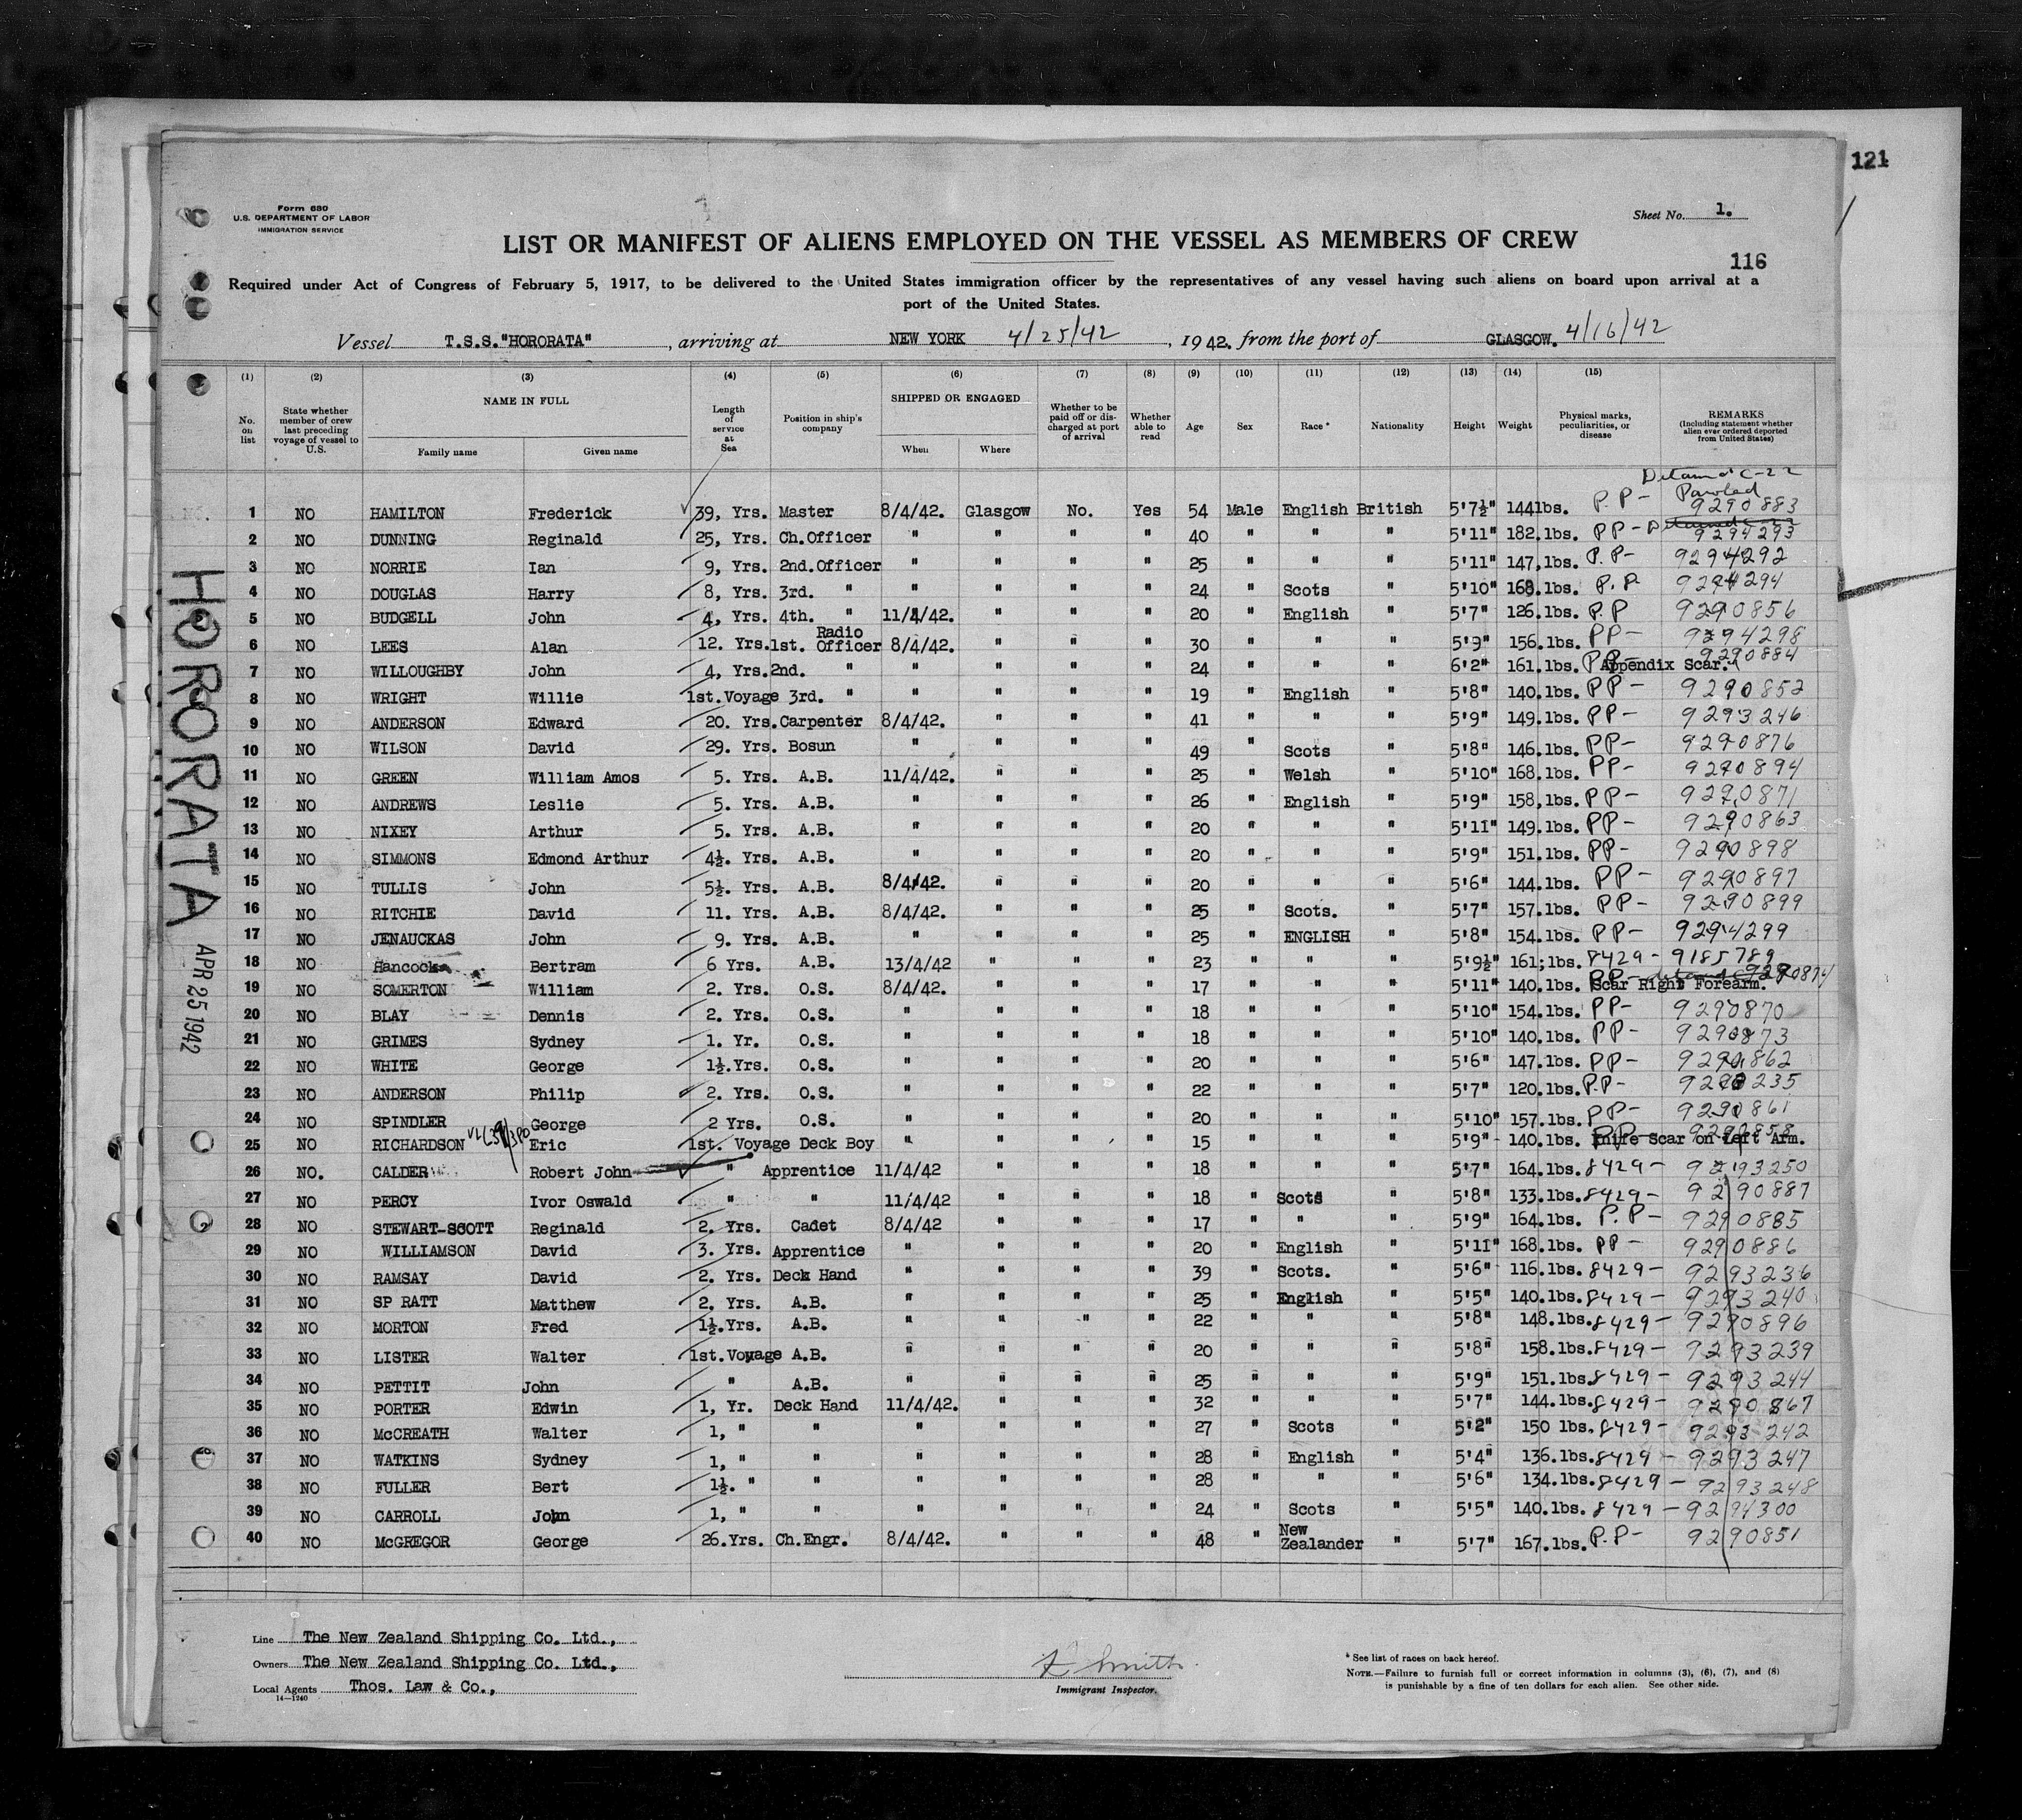 121
Form 680
U.S. DEPARTMENT OF LABOR
IMMIGRATION SERVICE
Sheet No. 1.
LIST OR MANIFEST OF ALIENS EMPLOYED ON THE VESSEL AS MEMBERS OF CREW
116
Required under Act of Congress of February 5, 1917, to be delivered to the United States immigration officer by the representatives of any vessel having such aliens on board upon arrival at a
port of the United States.
Vessel T.S.S."HORORATA", arriving at NEW YORK 4/25/42, 1942. from the port of GLASGOW. 4/16/42
(1) (2) (3) (4) (5) (6) (7) (8) (9) (10) (11) (12) (13) (14) (15)
No. on list
State whether member of crew last preceding voyage of vessel to U.S.
NAME IN FULL
Family name
Given name
Length of service at Sea
Position in ship's company
SHIPPED OR ENGAGED
When
Where
Whether to be paid off or discharged at port of arrival
Whether able to read
Age
Sex
Race *
Nationality
Height
Weight
Physical marks, peculiarities, or disease
REMARKS
(Including statement whether alien ever ordered deported from United States)
Detained C-22
Paroled
1 NO HAMILTON Frederick 39, Yrs. Master 8/4/42. Glasgow No. Yes 54 Male English British 5'7½" 144lbs. P.P- 9290883
2 NO DUNNING Reginald 25, Yrs. Ch.Officer " " " " 40 " " " 5'11" 182.lbs. PP- 9294293
3 NO NORRIE Ian 9, Yrs. 2nd.Officer " " " " 25 " " " 5'11" 147,lbs. P.P- 9294292
4 NO DOUGLAS Harry 8, Yrs. 3rd. " " " " " 24 " Scots " 5'10" 168.lbs. P.P 9294294
5 NO BUDGELL John 4, Yrs. 4th. " 11/4/42. " " " 20 " English " 5'7" 126.lbs. P.P 9290856
6 NO LEES Alan 12. Yrs. 1st. Radio Officer 8/4/42. " " " 30 " " " 5'9" 156.lbs. PP- 9294298
7 NO WILLOUGHBY John 4, Yrs. 2nd. " " " " " 24 " " 6'2" 161.lbs. PP- Appendix Scar. 9290884
8 NO WRIGHT Willie 1st.Voyage 3rd. " " " " " 19 " English " 5'8" 140.lbs. PP- 9290852
9 NO ANDERSON Edward 20. Yrs. Carpenter 8/4/42. " " " 41 " " " 5'9" 149.lbs. PP- 9293246
10 NO WILSON David 29. Yrs. Bosun " " " " 49 " Scots " 5'8" 146.lbs. PP- 9290876
11 NO GREEN William Amos 5. Yrs. A.B. 11/4/42. " " " 25 " Welsh " 5'10" 168.lbs. PP- 9290894
12 NO ANDREWS Leslie 5. Yrs. A.B. " " " " 26 " English " 5'9" 158,lbs. PP- 9290871
13 NO NIXEY Arthur 5. Yrs. A.B. " " " " 20 " " " 5'11" 149.lbs. PP- 9290863
14 NO SIMMONS Edmond Arthur 4½. Yrs. A.B. " " " " 20 " " " 5'9" 151.lbs. PP- 9290898
15 NO TULLIS John 5½. Yrs. A.B. 8/4/42. " " " 20 " " " 5'6" 144.lbs. PP- 9290897
16 NO RITCHIE David 11. Yrs. A.B. 8/4/42. " " " 25 " Scots. " 5'7" 157.lbs. PP- 9290899
17 NO JENAUCKAS John 9. Yrs. A.B. " " " " 25 " ENGLISH " 5'8" 154.lbs. PP- 9294299
18 NO Hancock Bertram 6 Yrs. A.B. 13/4/42 " " " 23 " " " 5'9½" 161;lbs. 8429- 9185789
19 NO SOMERTON William 2. Yrs. O.S. 8/4/42. " " " 17 " " " 5'11" 140.lbs. PP- Scar Right Forearm. 9290874
20 NO BLAY Dennis 2. Yrs. O.S. " " " " 18 " " " 5'10" 154.lbs. PP- 9290870
21 NO GRIMES Sydney 1. Yr. O.S. " " " " 18 " " " 5'10" 140.lbs. PP- 9290873
22 NO WHITE George 1½.Yrs. O.S. " " " " 20 " " " 5'6" 147.lbs. PP- 9290862
23 NO ANDERSON Philip 2. Yrs. O.S. " " " " 22 " " " 5'7" 120.lbs. P.P-
24 NO SPINDLER George 2 Yrs. O.S. " " " " 20 " " " 5'10" 157.lbs. PP- 9290861
25 NO RICHARDSON Eric 1st. Voyage Deck Boy " " " " 15 " " " 5'9" 140.lbs. PP- Knife Scar on Left Arm. 9290858
26 NO. CALDER Robert John " Apprentice 11/4/42 " " " 18 " " " 5'7" 164.lbs. 8429- 9293250
27 NO PERCY Ivor Oswald " " 11/4/42 " " " 18 " Scots " 5'8" 133.lbs. 8429- 9290887
28 NO STEWART-SCOTT Reginald 2. Yrs. Cadet 8/4/42 " " " 17 " " " 5'9" 164.lbs. P.P- 9290885
29 NO WILLIAMSON David 3. Yrs. Apprentice " " " " 20 " English " 5'11" 168.lbs. PP- 9290886
30 NO RAMSAY David 2. Yrs. Deck Hand " " " " 39 " Scots. " 5'6" 116.lbs. 8429- 9293236
31 NO SP RATT Matthew 2. Yrs. A.B. " " " " 25 " English " 5'5" 140.lbs. 8429- 9293240
32 NO MORTON Fred 1½.Yrs. A.B. " " " " 22 " " " 5'8" 148.lbs. 8429- 9290896
33 NO LISTER Walter 1st.Voyage A.B. " " " " 20 " " " 5'8" 158.lbs. 8429- 9293239
34 NO PETTIT John " A.B. " " " " 25 " " " 5'9" 151.lbs. 8429- 9293244
35 NO PORTER Edwin 1, Yr. Deck Hand 11/4/42. " " " 32 " " " 5'7" 144.lbs. 8429- 9290867
36 NO McCREATH Walter 1, " " " " " " 27 " Scots " 5'2" 150 lbs. 8429- 9293242
37 NO WATKINS Sydney 1, " " " " " " 28 " English " 5'4" 136.lbs. 8429- 9293247
38 NO FULLER Bert 1½. " " " " " " 28 " " " 5'6" 134.lbs. 8429- 9293248
39 NO CARROLL John 1, " " " " " " 24 " Scots " 5'5" 140.lbs. 8429- 9294300
40 NO McGREGOR George 26.Yrs. Ch.Engr. 8/4/42. " " " 48 " New Zealander " 5'7" 167.lbs. P.P- 9290851
HORORATA
APR 25 1942
Line The New Zealand Shipping Co. Ltd.,
Owners The New Zealand Shipping Co. Ltd.,
Local Agents Thos. Law & Co.,
14-1240
Smith
Immigrant Inspector.
* See list of races on back hereof.
NOTE.—Failure to furnish full or correct information in columns (3), (6), (7), and (8)
is punishable by a fine of ten dollars for each alien. See other side.